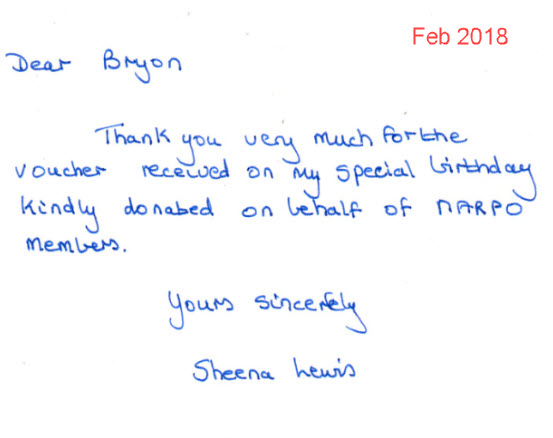 Feb 2018
Dear Bryon
Thank you very much for the
voucher received on my special birthday
kindly donated on behalf of NARPO
members.
Yours sincerely
Sheena Lewis